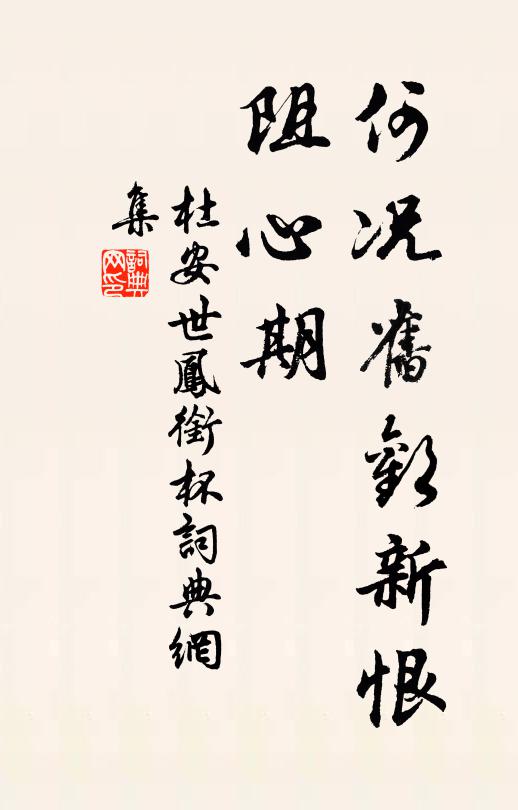 何况舊歡新恨
阻心期
杜安世鳳銜杯詞典網
集
詞典
网印